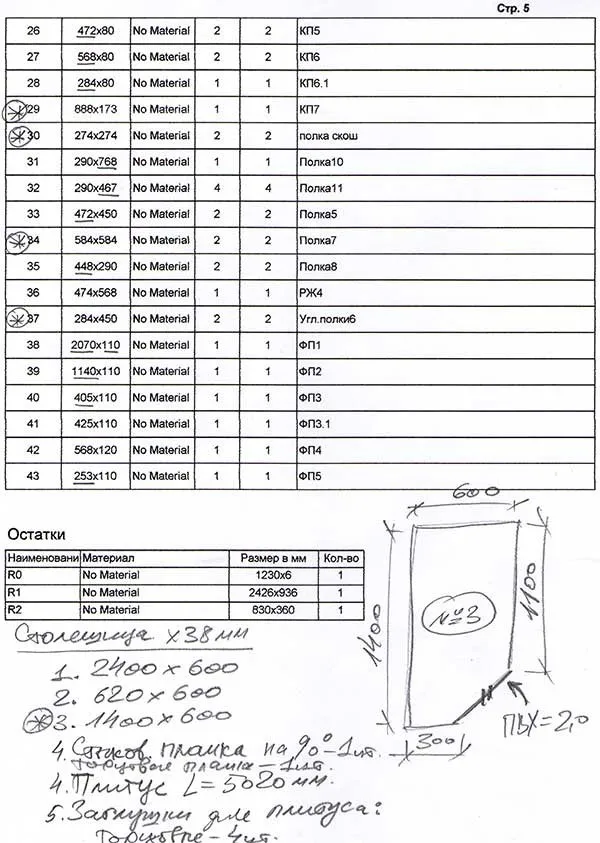 Стр. 5
26 472x80 No Material 2 2 КП5
27 568x80 No Material 2 2 КП6
28 284x80 No Material 1 1 КП6.1
29 888x173 No Material 1 1 КП7
30 274x274 No Material 2 2 полка скош
31 290x768 No Material 1 1 Полка10
32 290x467 No Material 4 4 Полка11
33 472x450 No Material 2 2 Полка5
34 584x584 No Material 2 2 Полка7
35 448x290 No Material 2 2 Полка8
36 474x568 No Material 1 1 РЖ4
37 284x450 No Material 2 2 Угл.полки6
38 2070x110 No Material 1 1 ФП1
39 1140x110 No Material 1 1 ФП2
40 405x110 No Material 1 1 ФП3
41 425x110 No Material 1 1 ФП3.1
42 568x120 No Material 1 1 ФП4
43 253x110 No Material 1 1 ФП5
600
1400
№3
1100
300
ПВХ=2,0
Остатки
Наименовани Материал Размер в мм Кол-во
R0 No Material 1230x6 1
R1 No Material 2426x936 1
R2 No Material 830x360 1
Столешница х38мм
1. 2400 х 600
2. 620 х 600
3. 1400 х 600
4. Стыков. планка на 90° - 1шт.
торцовые планка - 1шт.
4. Плитус L = 5020 мм.
5. Заглушки для плитуса:
Торцовые - 4шт.